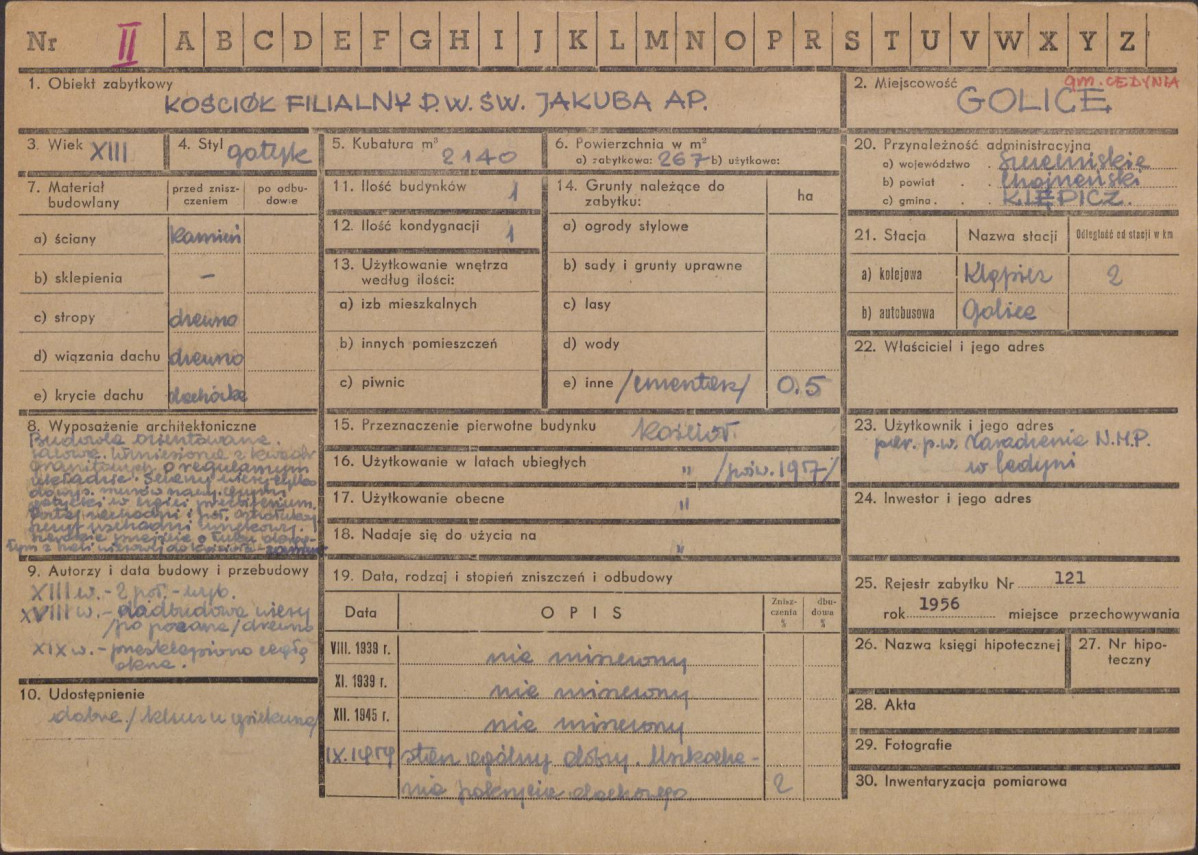 Nr II A B C D E F G H I J K L M N O P R S T U V W X Y Z
1. Obiekt zabytkowy
KOŚCIÓŁ FILIALNY P.W. ŚW. JAKUBA AP.
2. Miejscowość gm. CEDYNIA
GOLICE
3. Wiek XIII
4. Styl gotyk
5. Kubatura m³ 2140
6. Powierzchnia w m²
a) zabytkowa: 267 b) użytkowe:
20. Przynależność administracyjna
a) województwo . Szczecińskie
b) powiat . . Chojneński
c) gmina . . KLĘPICZ.
7. Materiał budowlany
przed znisz-
czeniem
po odbu-
dowie
a) ściany kamień
b) sklepienia –
c) stropy drewno
d) wiązania dachu drewno
e) krycie dachu dachówka
11. Ilość budynków 1
12. Ilość kondygnacji 1
13. Użytkowanie wnętrza
według ilości:
a) izb mieszkalnych
b) innych pomieszczeń
c) piwnic
14. Grunty należące do
zabytku:
ha
a) ogrody stylowe
b) sady i grunty uprawne
c) lasy
d) wody
e) inne /cmentarz/ 0.5
21. Stacja Nazwa stacji Odległość od stacji w km
a) kolejowa Klępicz 2
b) autobusowa Golice
22. Właściciel i jego adres
8. Wyposażenie architektoniczne
Budowla orientowana,
salowa. Wzniesiona z kwadr
granitowych o regularnym
układzie.
9. Autorzy i data budowy i przebudowy
XIII w. - 2 poł. - wyb.
XVIII w. - dadbudowa wieży
/po pożarze/ drewno
XIX w. - przesklepiono cegłą
okna.
10. Udostępnienie
dobre /klucz u opiekuna/
15. Przeznaczenie pierwotne budynku kościół.
16. Użytkowanie w latach ubiegłych " /
17. Użytkowanie obecne "
18. Nadaje się do użycia na "
19. Data, rodzaj i stopień zniszczeń i odbudowy
Data OPIS
Znisz-
czenia
%
dbu-
dowa
%
VIII. 1939 r. nie niszczony
XI. 1939 r. nie niszczony
XII. 1945 r. nie niszczony
IX. 1959 stan ogólny dobry. Uszkodze-
nia pokrycia dachowego 2
23. Użytkownik i jego adres
par. p.w. Narodzenia N.M.P.
w Cedyni
24. Inwestor i jego adres
25. Rejestr zabytku Nr 121
rok 1956 miejsce przechowywania
26. Nazwa księgi hipotecznej
27. Nr hipo-
teczny
28. Akta
29. Fotografie
30. Inwentaryzacja pomiarowa